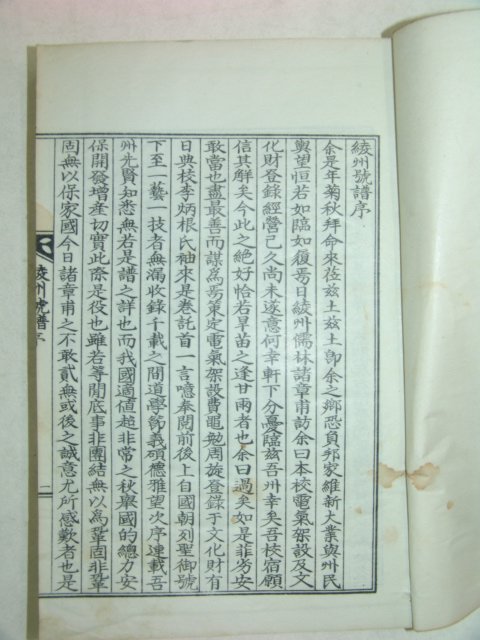 綾州號譜序
余是年菊秋拜命來莅玆土玆土卽余之鄕恐負邦家維新大業與州民
輿望恒若如臨如履焉日綾州儒林諸章甫訪余曰本校電氣架設及文
化財登錄經營已久尙未遂意何幸軒下分憂臨玆吾州幸矣吾校宿願
信其解矣今此之絶好恰若旱苗之逢甘雨者也余曰過矣如是菲劣安
敢當也盡最善而謀爲焉策定電氣架設費黽勉周旋登錄于文化財有
日典校李炳根氏袖來是卷託首一言噫奉閱前後上自國朝列聖御號
下至一藝一技者無漏收錄千載之間道學節義碩德雅望次序連載吾
州先賢知悉無若是譜之詳也而我國適値超非常之秋擧國的總力安
保開發增産切實此際是役也雖若等閒底事非團結無以爲鞏固非鞏
固無以保家國今日諸章甫之不敢貳無或後之誠意尤所感歎者也是
綾州號譜序
一